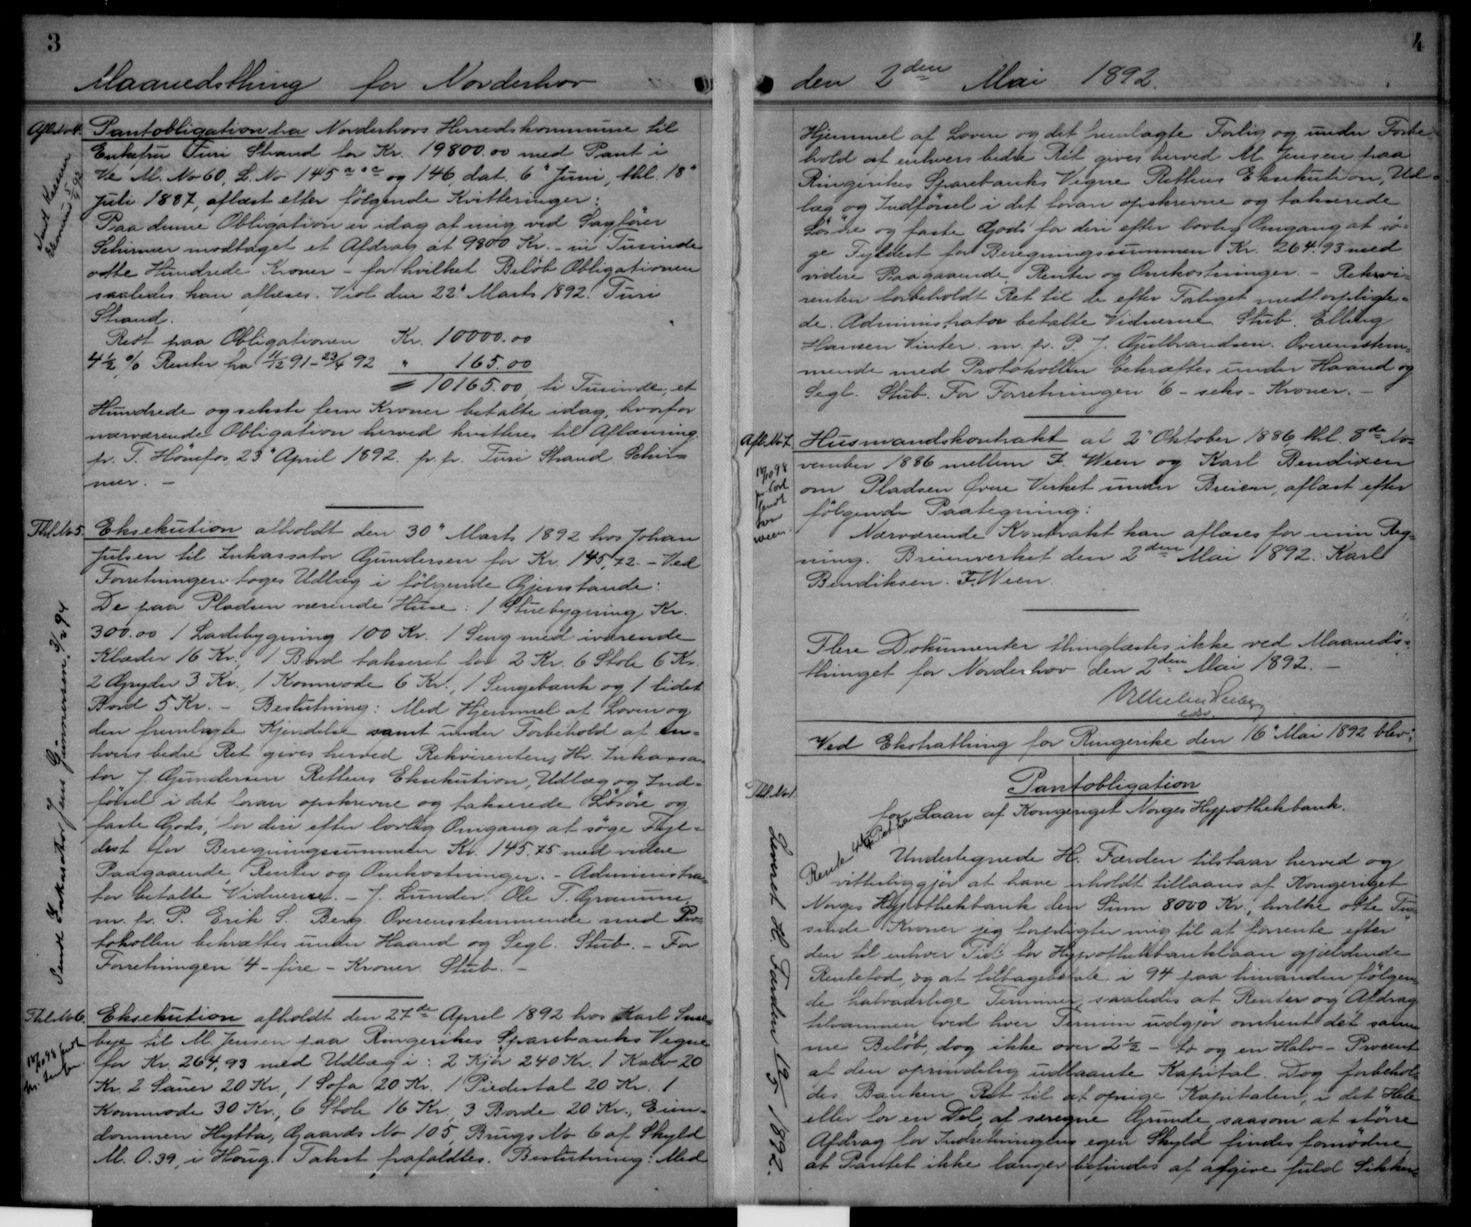 3
Maanedsthing for Norderhov
Afl. No 4.
Pantobligation fra Norderhovs Herredskommune til
Enkefru Turi Strand for Kr. 19800.00 med Pant i
M. No 60, L. No 145 og 146 dat. 6 Juni, thl. 18
Juli 1887, aflæst efter følgende Kvitteringer:
Paa denne Obligation er idag af mig ved Sagfører
Schirmer modtaget et Afdrag af 9800 Kr. - ni Tusinde
otte Hundrede Kroner - for hvilket Beløb Obligationen
saaledes kan aflæses. Viol den 22 Marts 1892. Turi
Strand.
Rest paa Obligationen Kr. 10000.00
4½ % Renter fra 91 - 92 " 165.00
= 10165.00, ti Tusinde, et
Hundrede og seksti fem Kroner betalte idag, hvorfor
nærværende Obligation herved kvitteres til Aflæsning.
p. T. Hönefos, 23 April 1892. pr. pr. Turi Strand Schir-
mer. -
Thl. No 5.
Eksekution afholdt den 30 Marts 1892 hos Johan
Julsen til Inkassator Gundersen for Kr. 145,72. - Ved
Forretningen toges Udlæg i følgende Gjenstande:
De paa Pladsen værende Huse: 1 Stuebygning Kr.
300.00 1 Ladebygning 100 Kr. 1 Seng med iværende
Klæder 16 Kr., 1 Bord takseret for 2 Kr. 6 Stole 6 Kr.
2 Gryder 3 Kr., 1 Kommode 6 Kr., 1 Sengebænk og 1 lidet
Bord 5 Kr. - Beslutning: Med Hjemmel af Loven og
den fremlagte Kjendelse samt under Forbehold af en-
hvers bedre Ret gives herved Rekvirenten, Hr. Inkassa-
tor J Gundersen Rettens Eksekution, Udlæg og Ind-
førsel i det foran opskrevne og takserede Løsøre og
faste Gods, for deri efter lovlig Omgang at søge Fyl-
dest for Beregningssummen Kr. 145.75 med videre
Paagaaende Renter og Omkostninger. - Administra-
tor betalte Vidnerne. - J. Lunder. Ole T.
m. p. P. Erik S. Berg Overensstemmende med Pro-
tokollen bekræftes under Haand og Segl. Stub. - For
Forretningen 4 - fire - Kroner. Stub. -
Thl. No 6.
Eksekution afholdt den 27de April 1892 hos Karl
bye til M. Jensen paa Ringerikes Sparebanks Vegne
for Kr. 264,93 med Udlæg i: 2 Kjør 240 Kr. 1 Kalv 20
Kr. 2 Sauer 20 Kr., 1 Sofa 20 Kr. 1 Piedestal 20 Kr. 1
Kommode 30 Kr., 6 Stole 16 Kr, 3 Borde 20 Kr., Eien-
dommen Hytta, Gaards No 105, Brugs No 6 af Skyld
M. 0.39, i Houg. Takst frafaldtes. Beslutning: Med
4
den 2den Mai 1892.
Hjemmel af Loven og det fremlagte Forlig og under Forbe-
hold af enhvers bedre Ret gives herved M. Jensen paa
Ringerikes Sparebanks Vegne Rettens Eksekution, Ud-
læg og Indførsel i det foran opskrevne og takserede
Løsøre og faste Gods for deri efter lovlig Omgang at sø-
ge Fyldest for Beregningssummen Kr. 264.93 med
videre Paagaaende Renter og Omkostninger. - Rekvi-
renten forbeholdt Ret til de efter Forliget medforpligte-
de. Administrator betalte Vidnerne. Stub. Elling
Hansen Vinter. m. p. P. J. Gulbrandsen. Overensstem-
mende med Protokollen bekræftes under Haand og
Segl. Stub. For Forretningen 6 - seks - Kroner. -
Afl. No 7.
Husmandskontrakt af 2 Oktober 1886 thl. 8de No-
vember 1886 mellem F. Ween og Karl Bendixen
om Pladsen Øvre Verket under Breien, aflæst efter
følgende Paategning:
Nærværende Kontrakt kan aflæses for min Reg-
ning. Breienverket den 2den Mai 1892. Karl
Bendiksen. F. Ween.
Flere Dokumenter thinglæstes ikke ved Maaneds-
thinget for Norderhov den 2den Mai 1892. -
Ved Ekstrathing for Ringerike den 16 Mai 1892 blev:
Thl. No 1.
Pantobligation
for Laan af Kongeriget Norges Hypothekbank.
Undertegnede H. Færden tilstaar herved og
vitterliggjør at have erholdt tillaans af Kongeriget
Norges Hypothekbank den Sum 8000 Kr., hvilke otte Tu-
sinde Kroner jeg forpligter mig til at forrente efter
den til enhver Tid for Hypothekbanklaan gjældende
Rentefod, og at tilbagebetale i 94 paa hinanden følgen-
de halvaarlige Terminer, saaledes at Renter og Afdrag
tilsammen ved hver Termin udgjør omtrent det sam-
me Beløb, dog ikke over 2½ - to og en Halv - Procent
af den oprindelig udlaante Kapital. Dog forbehol-
des Banken Ret til at opsige Kapitalen, i det Hele
eller for en Del, af særegne Grunde, saasom at større
Afdrag for Indretningens egen Skyld findes fornødne
at Pantet ikke længer befindes at afgive fuld Sikker-
Sendt Inkassator Jens Gundersen 94
Leveret H. Færden 1892.